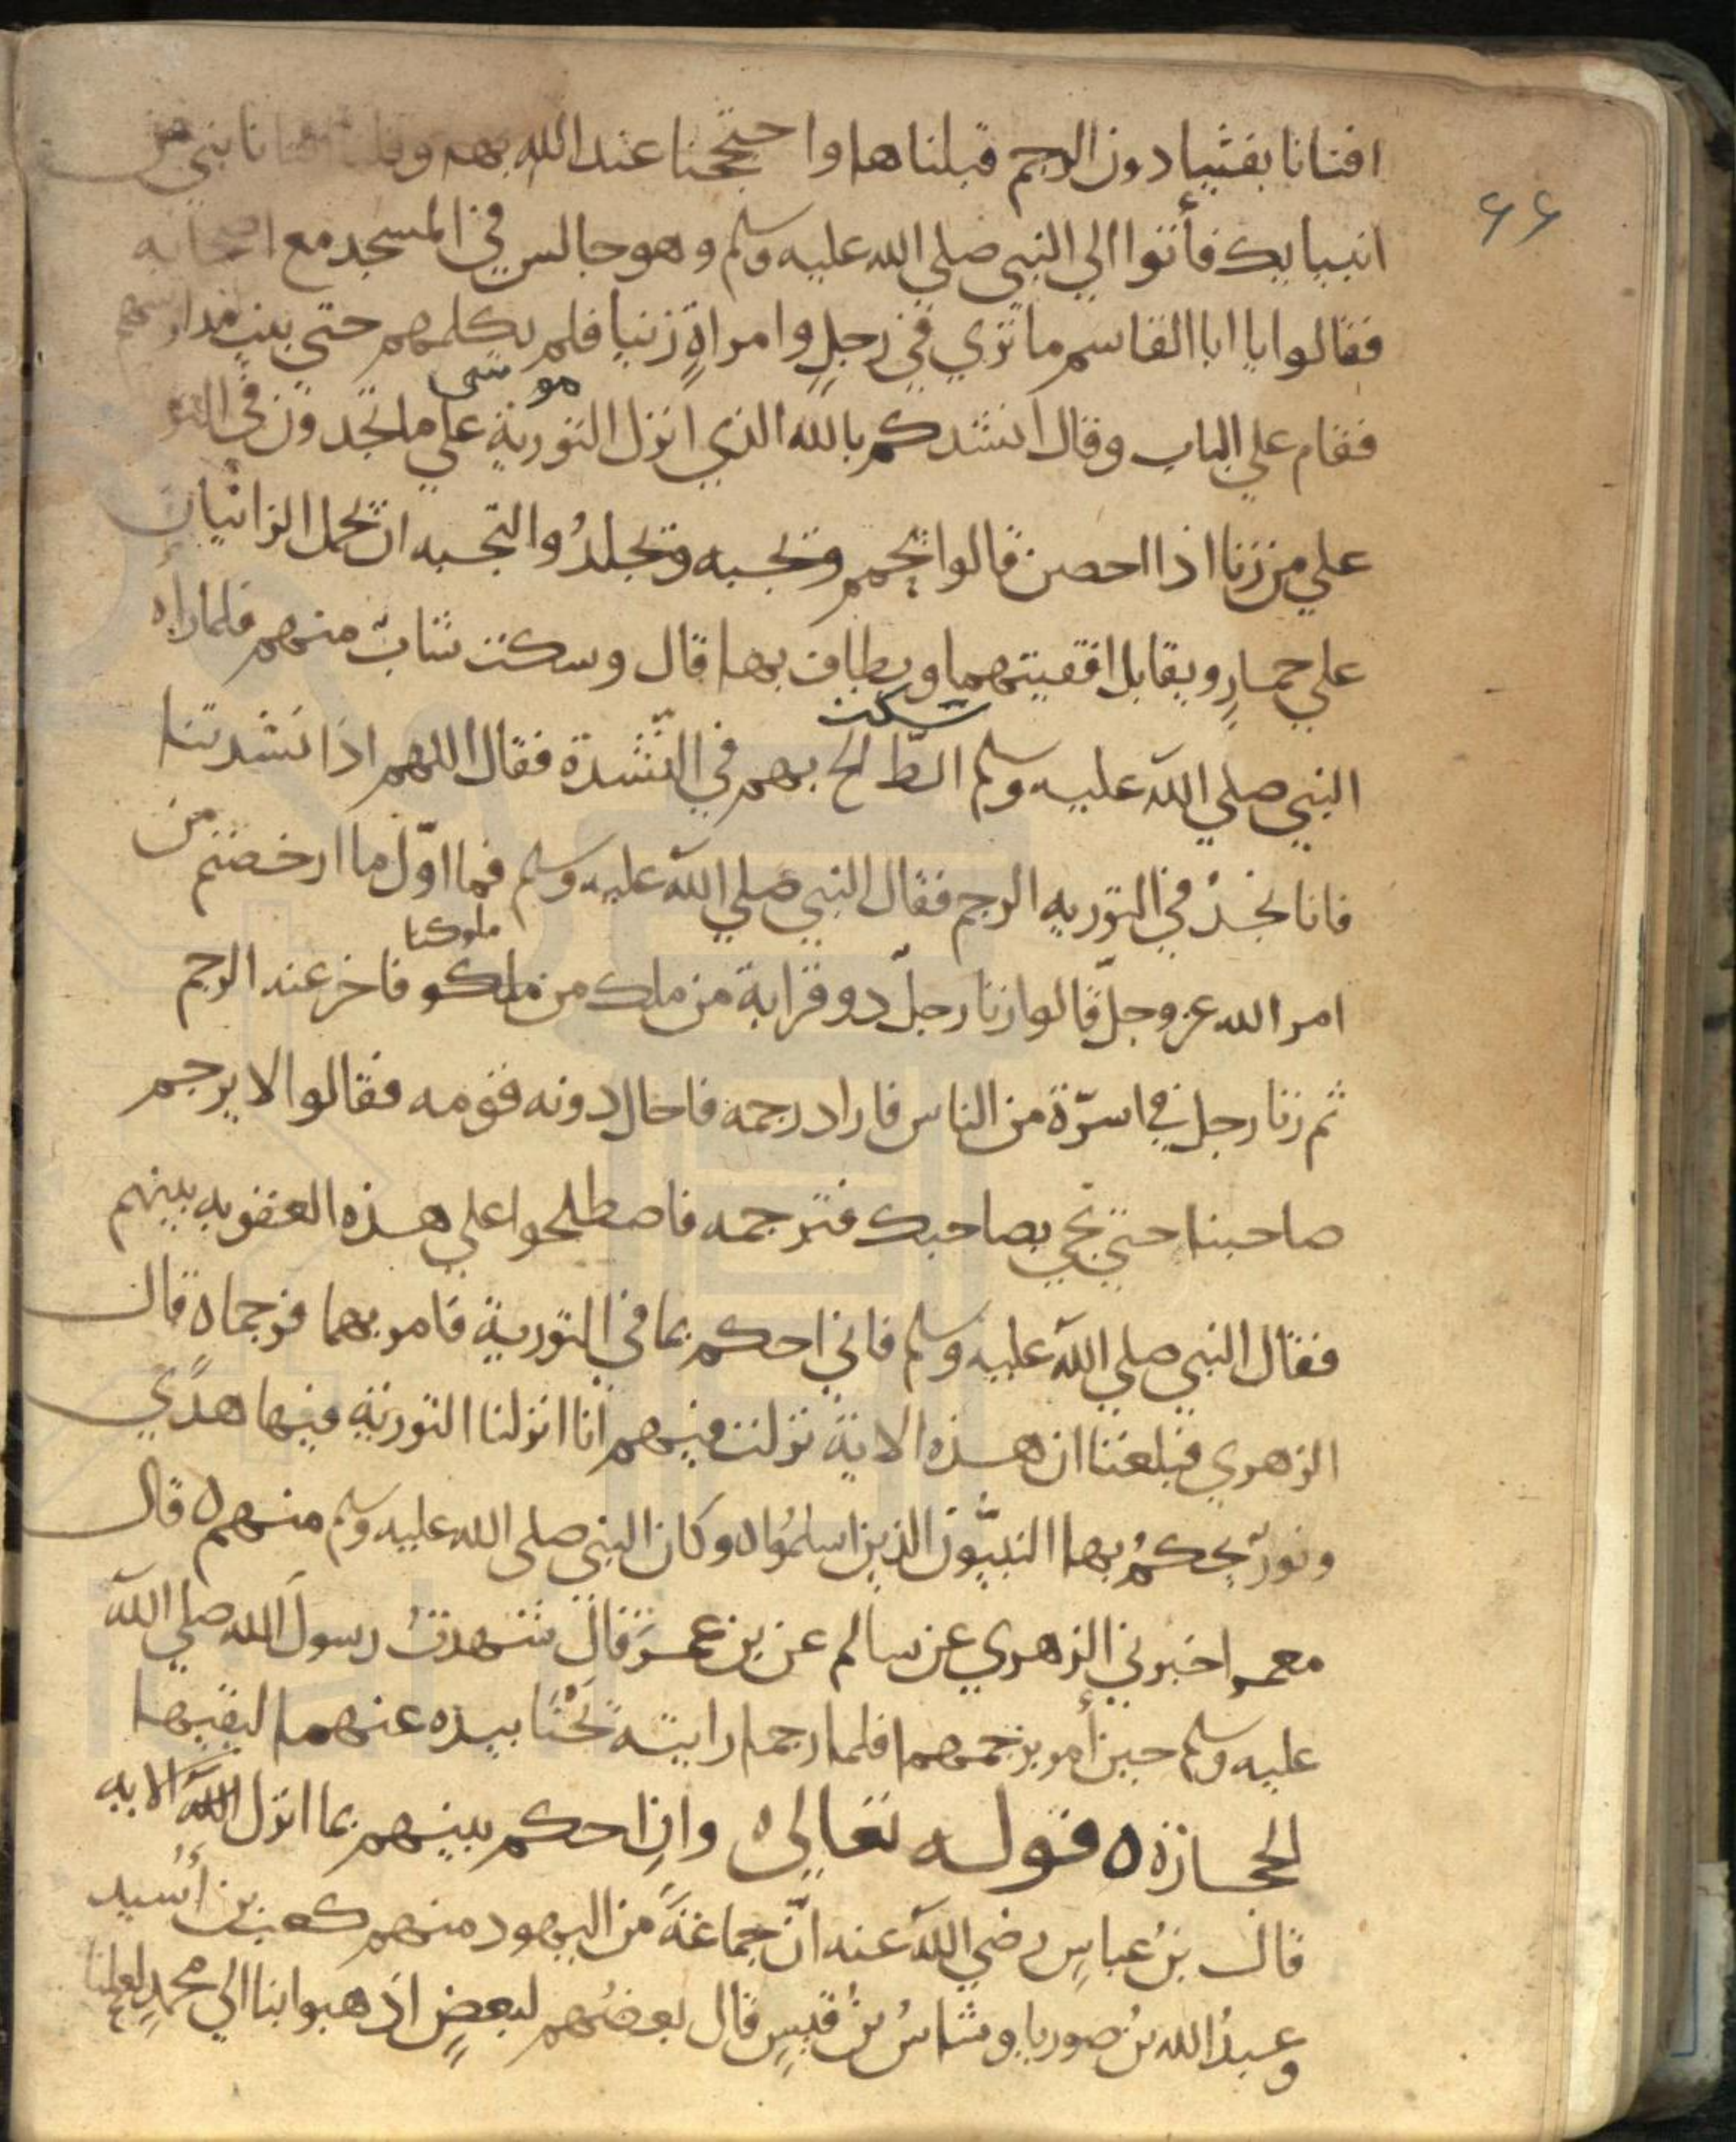 ٦٦
افتانا بفتيا دون الرجم قبلناها واحتججنا عند الله بهم وقلنا نبي من
انبيايك فأتوا الي النبي صلي الله عليه وسلم وهو جالس في المسجد مع اصحابه
فقالوا يا ابا القاسم ما تري في رجلٍ وامراةٍ زنيا فلم يكلمهم حتي بيت مدارسهم
موسى
فقام علي الباب وقال انشدكم بالله الذي انزل التورية علي ما تجدون في التو
علي من زنا اذا احصن قالوا يحمم ويجبه ويجلدُ والتجبه ان يحمل الزانيان
علي حمارٍ ويقابل اقفيتهما ويطاف بهما قال وسكت شابٌ منهم فلما راه
سكت
النبي صلي الله عليه وسلم الظ بهم في النشدة فقال اللهم اذا نشدتنا
فانا نجدُ في التوريه الرجم فقال النبي صلي الله عليه وسلم فما اوّل ما ارخصتم من
ملوكنا
امر الله عز وجلّ قالوا زنا رجلٌ دو قرابة من ملك من ملكو فاخر عنه الرجم
ثم زنا رجل في اسرّة من الناس فاراد رجمه فاحال دونه قومه فقالوا لا يرجم
صاحبنا حتي تجي بصاحبك فترجمه فاصطلحوا علي هذه العقوبه بينهم
فقال النبي صلي الله عليه وسلم فاني احكم بما في التورية فامر بهما فرجما ه قال
الزهري فبلغنا ان هذه الاية نزلت فيهم انا انزلنا التورية فيها هدًي
ونورٌ يحكمُ بها النبيّون الذين اسلمُوا ه وكان النبي صلى الله عليه وسلم منهم ه قال
معمر اخبرني الزهري عن سالم عن بن عمرَ قال شهدتُ رسول الله صلي الله
عليه وسلم حين أمر برجمهما فلما رجما رايته تحْنَا بيده عنهما ليقيها
الحجازة ه قوله تعالي ه وانِ احكم بينهم بما انزل الله الايه
قال بنُ عباسٍ رضي الله عنه انّ جماعةً من اليهود منهم كعب بن أسيد
وعبدُ الله بنُ صوريا وشاسُ بنُ قيسٍ قال بعضُهم لبعضٍ اذهبوا بنا الي محمدٍ لعلنا